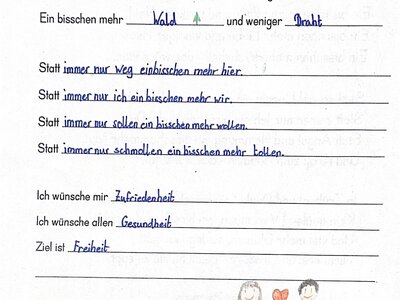 Ein bisschen mehr Wald und weniger Draht
Statt immer nur weg einbisschen mehr hier.
Statt immer nur ich ein bisschen mehr wir.
Statt immer nur sollen ein bisschen mehr wollen.
Statt immer nur schmollen ein bisschen mehr tollen.
Ich wünsche mir Zufriedenheit
Ich wünsche allen Gesundheit
Ziel ist Freiheit